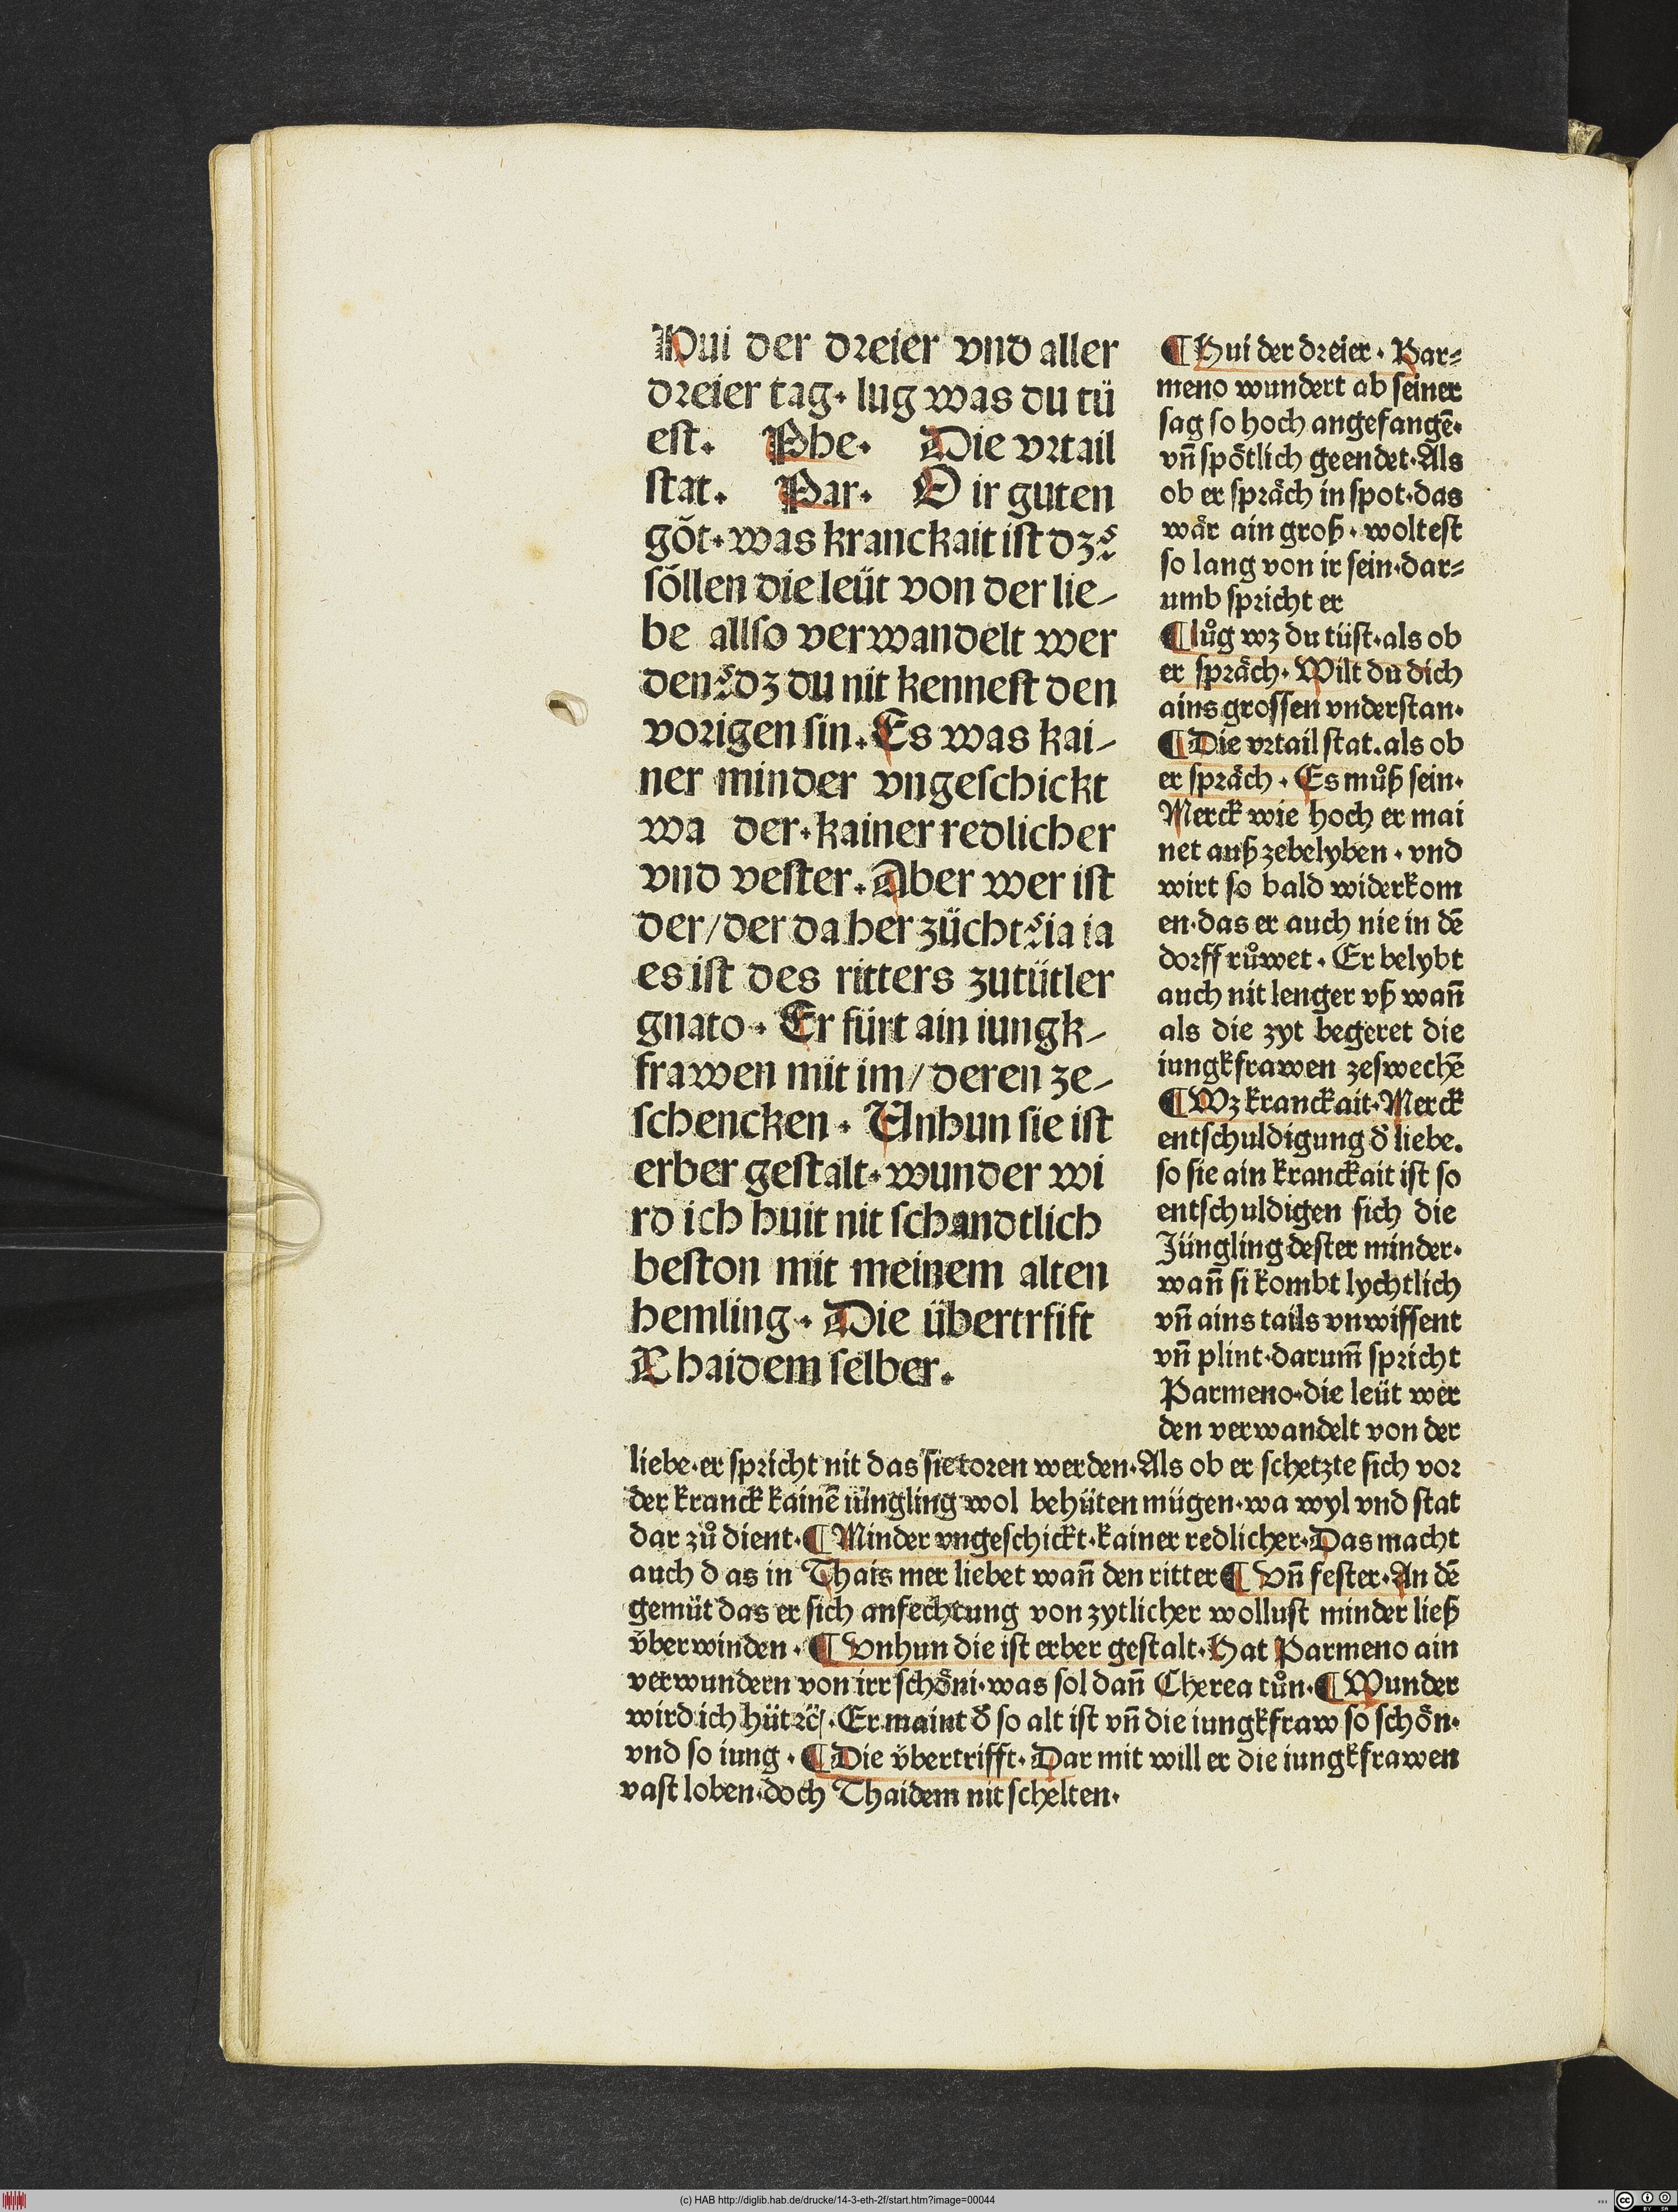 Hui der dreier vnd aller
dreier tag· lug was du tü
est· Phe· Die vrtail
stat· Par· O ir guten
göt· was kranckait ist dz?
söllen die leüt von der lie-
be allso verwandelt wer
den? dz du nit kennest den
vorigen sin· Es was kai-
ner minder vngeschickt
wa der· kainer redlicher
vnd vester· Aber wer ist
der/ der da her zücht? ia ia
es ist des ritters zutütler
gnato· Er fürt ain iungk-
frawen mit im/ deren ze-
schencken· Vnhun sie ist
erber gestalt· wunder wi
rd ich huit nit schandtlich
beston mit meinem alten
hemling· Die übertrfift
Thaidem selber·
¶ Hui der dreier· Par=
meno wundert ab seiner
sag so hoch angefangē·
vñ spötlich geendet· Als
ob er spräch in spot· das
wär ain groß· woltest
so lang von ir sein· dar=
umb spricht er
¶ lůg wz du tüst· als ob
er spräch· Wilt du dich
ains grossen vnderstan·
¶ Die vrtail stat· als ob
er spräch· Es můß sein·
Merck wie hoch er mai
net auß zebelyben· vnd
wirt so bald widerkom
en· das er auch nie in dē
dorff růwet· Er belybt
auch nit lenger vß wañ
als die zyt begeret die
iungkfrawen zeswechē
¶ Wz kranckait· Merck
entschuldigung d̄ liebe·
so sie ain kranckait ist so
entschuldigen sich die
Jüngling dester minder·
wañ si kombt lychtlich
vñ ains tails vnwissent
vñ plint· darum̄ spricht
Parmeno· die leüt wer
den verwandelt von der
liebe· er spricht nit das sie toren werden· Als ob er schetzte sich vor
der kranck kainē iüngling wol behüten mügen· wa wyl vnd stat
dar zů dient· ¶ Minder vngeschickt· kainer redlicher· Das macht
auch d as in Thais mer liebet wañ den ritter ¶ Vñ fester· An dē
gemüt das er sich anfechtung von zytlicher wollust minder ließ
v̈berwinden· ¶ Vnhun die ist erber gestalt· Hat Parmeno ain
verwundern von irr schöni· was sol dañ Cherea tůn· ¶ Wunder
wird ich hüt ꝛc̈· Er maint d̄ so alt ist vñ die iungkfraw so schön·
vnd so iung· ¶ Die v̈bertrifft· Dar mit will er die iungkfrawen
vast loben· doch Thaidem nit schelten·
(c) HAB http://diglib.hab.de/drucke/14-3-eth-2f/start.htm?image=00044